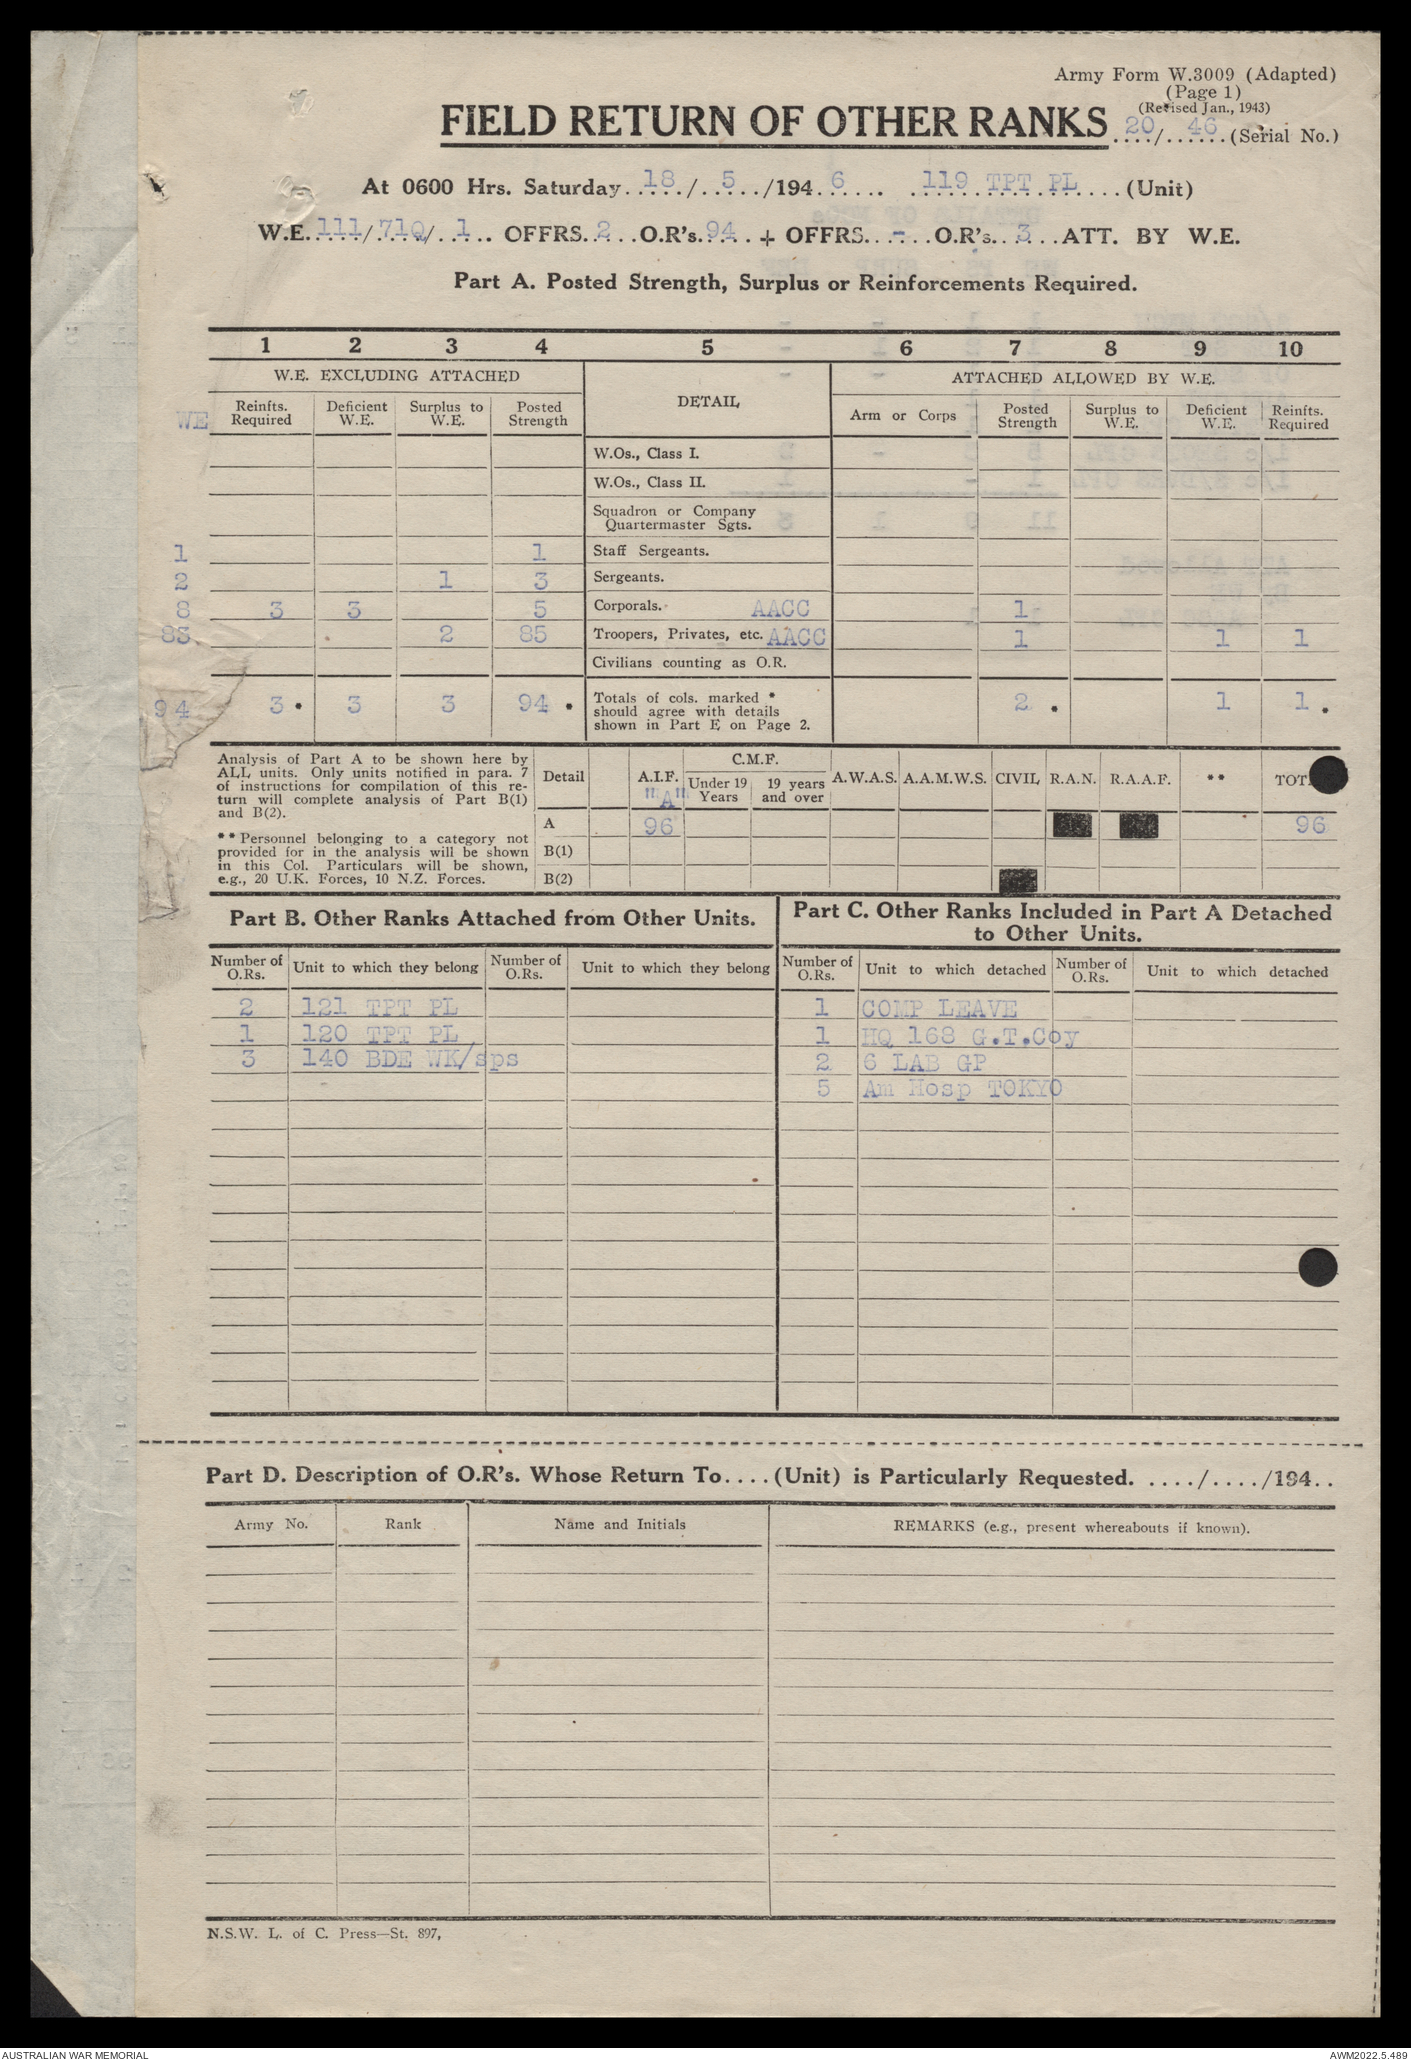 Army Form W.3009 (Adapted)
(Page 1)
(Revised Jan., 1943)
FIELD RETURN OF OTHER RANKS 20/46 (Serial No.)
At 0600 Hrs. Saturday 18/5/1946 119 TPT PL (Unit)
W.E. 111/71Q/1 OFFRS. 2 O.R's. 94 + OFFRS. - O.R's. 3 ATT. BY W.E.
Part A. Posted Strength, Surplus or Reinforcements Required.
1 2 3 4 5 6 7 8 9 10
W.E. EXCLUDING ATTACHED DETAIL ATTACHED ALLOWED BY W.E.
WE Reinfts. Required Deficient W.E. Surplus to W.E. Posted Strength Arm or Corps Posted Strength Surplus to W.E. Deficient W.E. Reinfts. Required
W.Os., Class I.
W.Os., Class II.
Squadron or Company
Quartermaster Sgts.
1 1 Staff Sergeants.
2 1 3 Sergeants.
8 3 3 5 Corporals. AACC 1
83 2 85 Troopers, Privates, etc. AACC 1 1 1
Civilians counting as O.R.
94 3* 3 3 94* Totals of cols. marked * 2* 1 1*
should agree with details
shown in Part E on Page 2.
Analysis of Part A to be shown here by
ALL units. Only units notified in para. 7
of instructions for compilation of this re-
turn will complete analysis of Part B(1)
and B(2).
** Personnel belonging to a category not
provided for in the analysis will be shown
in this Col. Particulars will be shown,
e.g., 20 U.K. Forces, 10 N.Z. Forces.
Detail A.I.F. "A" C.M.F. Under 19 Years 19 years and over A.W.A.S. A.A.M.W.S. CIVIL R.A.N. R.A.A.F. ** TOT
A 96 96
B(1)
B(2)
Part B. Other Ranks Attached from Other Units.
Number of O.Rs. Unit to which they belong Number of O.Rs. Unit to which they belong
2 121 TPT PL
1 120 TPT PL
3 140 BDE WK/sps
Part C. Other Ranks Included in Part A Detached
to Other Units.
Number of O.Rs. Unit to which detached Number of O.Rs. Unit to which detached
1 COMP LEAVE
1 HQ 168 G.T.Coy
2 6 LAB GP
5 Am Hosp TOKYO
Part D. Description of O.R's. Whose Return To....(Unit) is Particularly Requested. ..../..../194..
Army No. Rank Name and Initials REMARKS (e.g., present whereabouts if known).
N.S.W. L. of C. Press—St. 897,
AUSTRALIAN WAR MEMORIAL
AWM2022.5.489